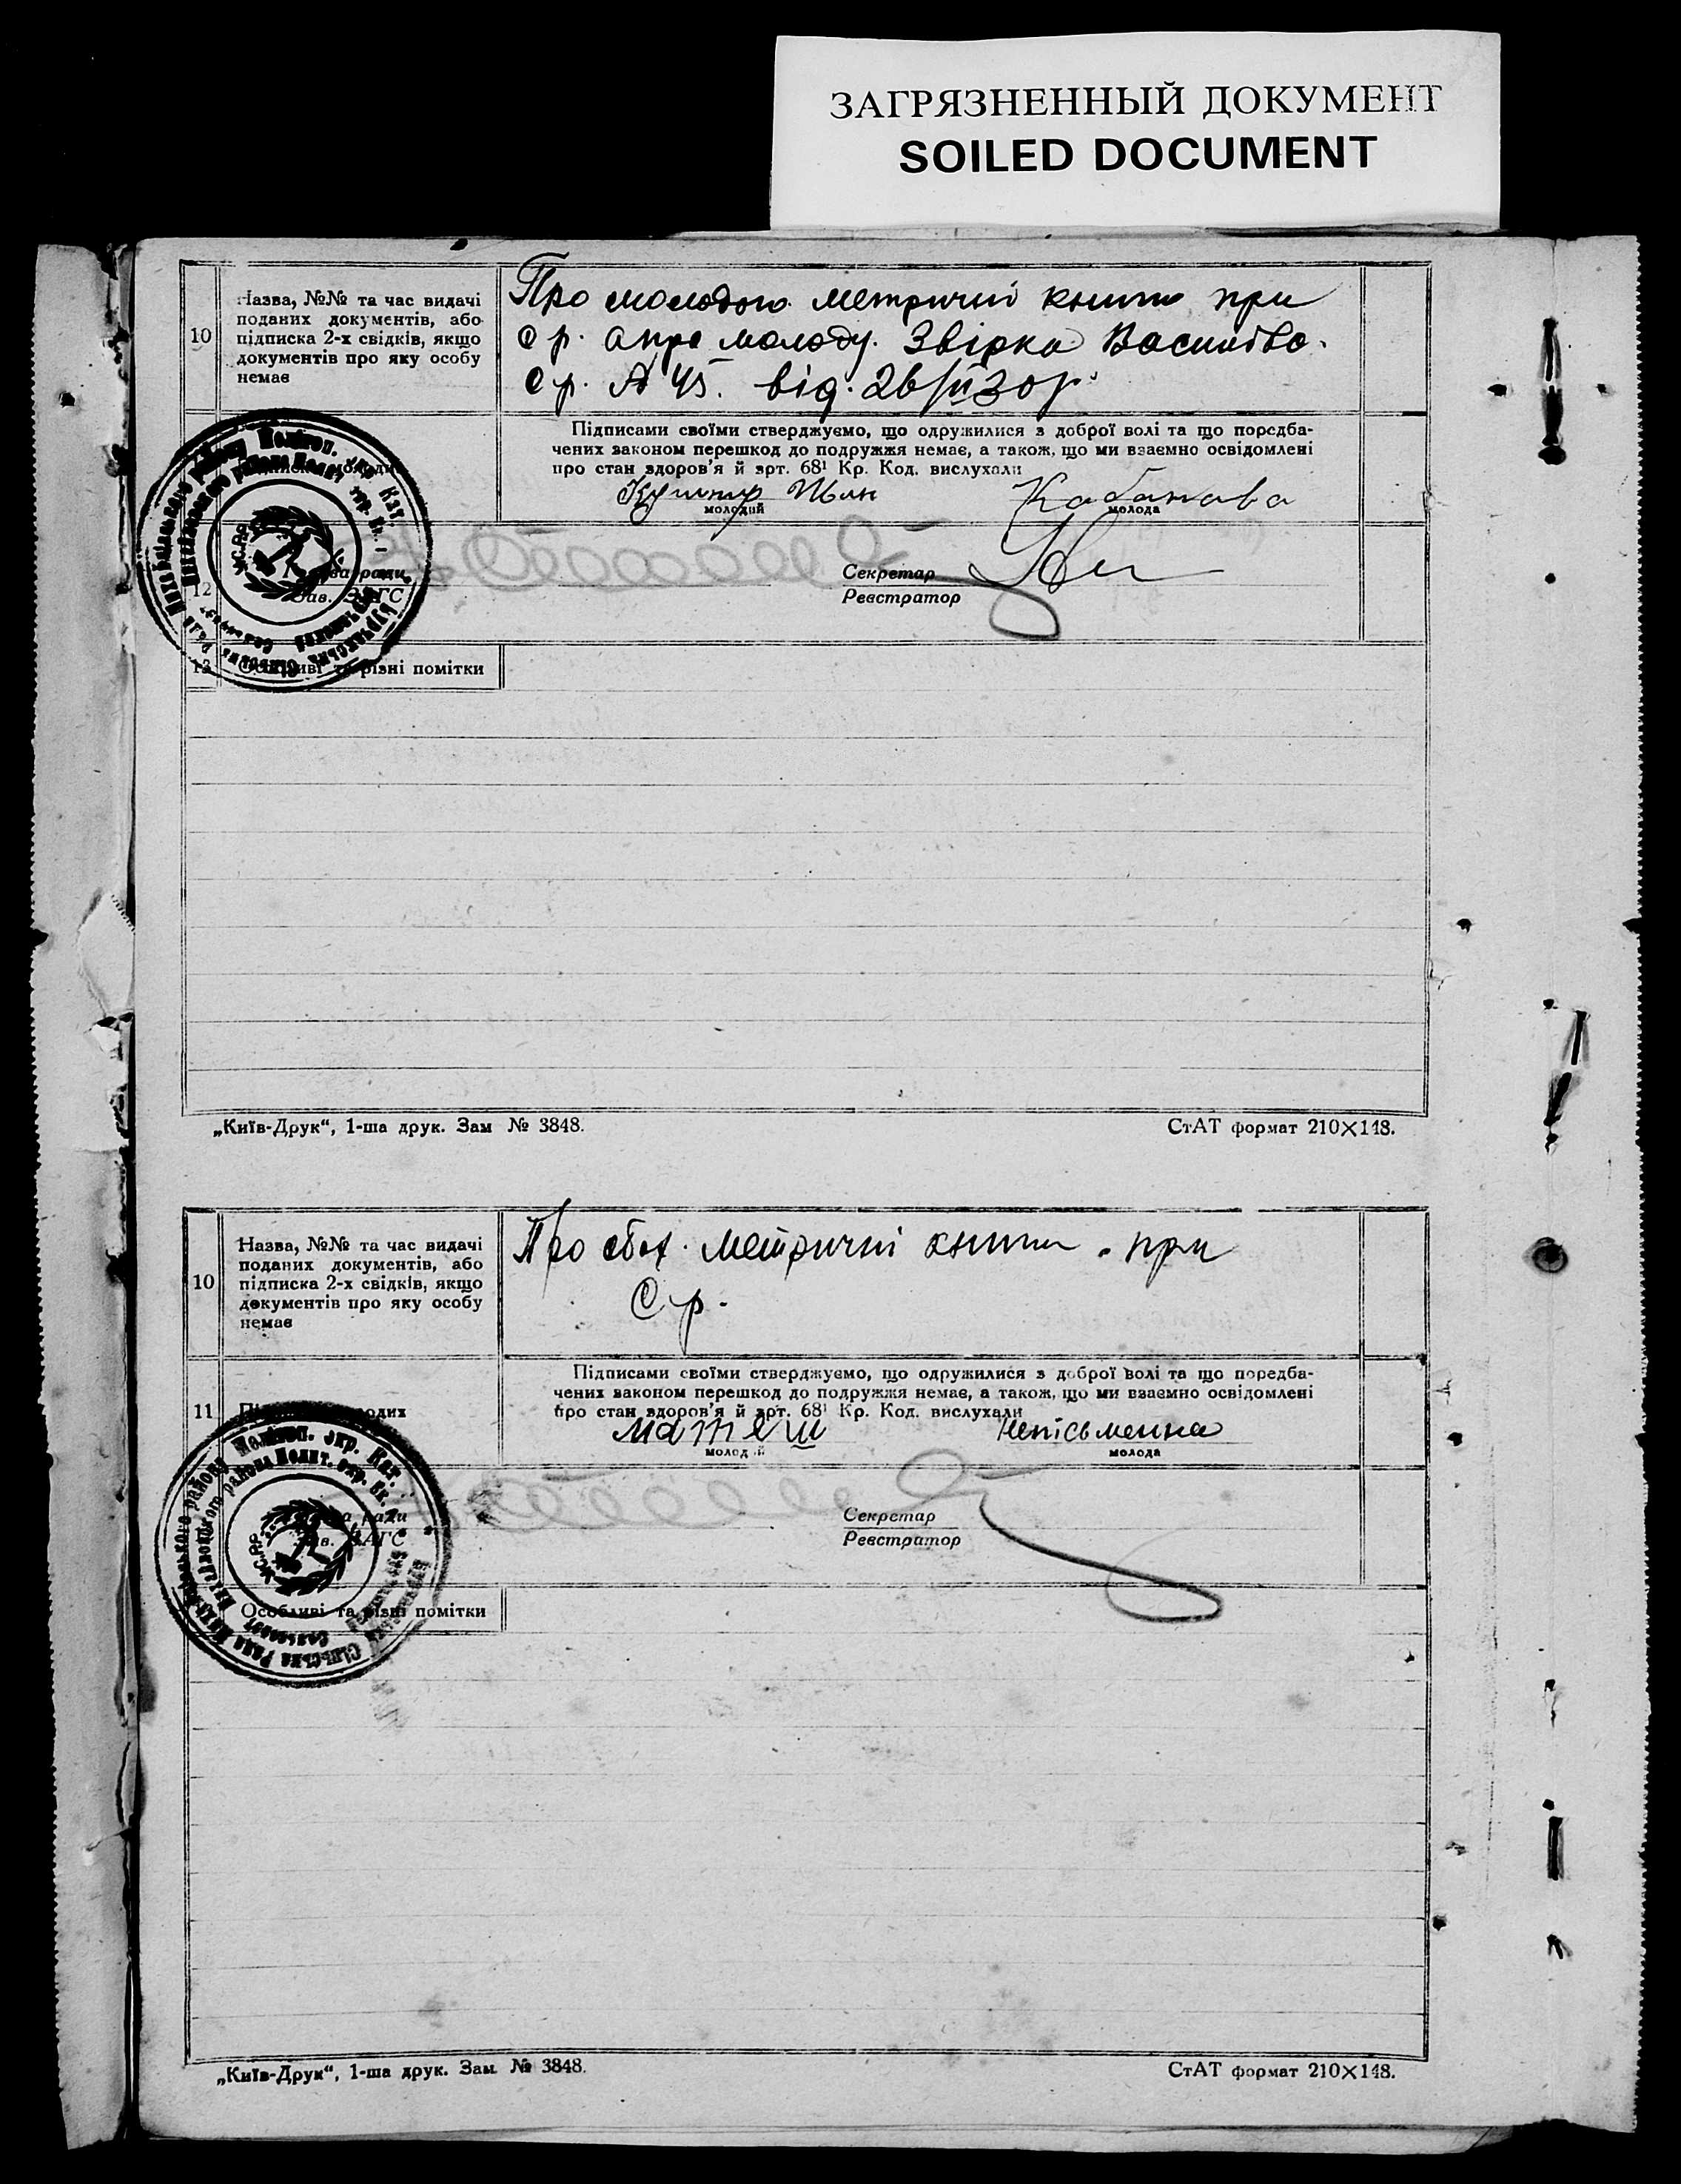 ЗАГРЯЗНЕННЫЙ ДОКУМЕНТ
SOILED DOCUMENT
10
Назва, №№ та час видачі
поданих документів, або
підписка 2-х свідків, якщо
документів про яку особу
немає
Про молодого метричні книги при
с р. а про молоду. Звірка Василівс.
с р. від. 26/ІІ 30 р.
Підписами своїми стверджуємо, що одружилися з доброї волі та що передба-
чених законом перешкод до подружжя немає, а також, що ми взаємно освідомлені
про стан здоров'я й арт. 68¹ Кр. Код. вислухали
Кабанова
молодий
молода
12
Секретар
Зав. ЗАГС
Реєстратор
13
Особливі та різні помітки
„Київ-Друк“, 1-ша друк. Зам № 3848.
СтАТ формат 210×148.
10
Назва, №№ та час видачі
поданих документів, або
підписка 2-х свідків, якщо
документів про яку особу
немає
Про обох. метричні книги. при
С р.
Підписами своїми стверджуємо, що одружилися з доброї волі та що передба-
чених законом перешкод до подружжя немає, а також, що ми взаємно освідомлені
про стан здоров'я й арт. 68¹ Кр. Код. вислухали
11
Матеш
непісьменна
молодий
молода
ради
Секретар
ЗАГС
Реєстратор
Особливі та різні помітки
„Київ-Друк“, 1-ша друк. Зам. № 3848.
СтАТ формат 210×148.